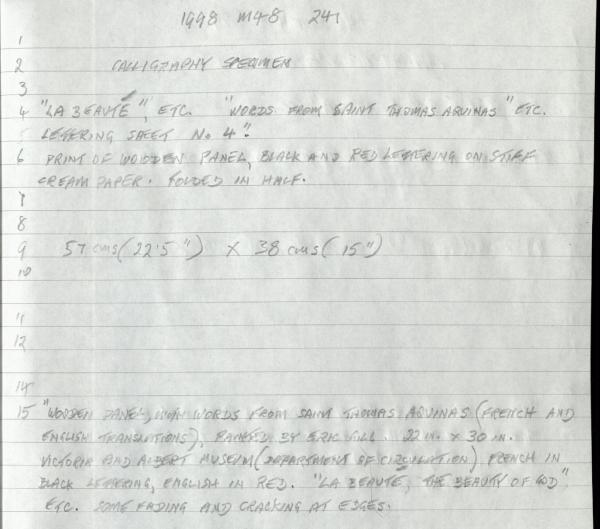 1998 M48 241
1
2 CALLIGRAPHY SPECIMEN
3
4 "LA BEAUTÉ", ETC. "WORDS FROM SAINT THOMAS AQUINAS" ETC.
LETTERING SHEET No 4".
6 PRINT OF WOODEN PANEL, BLACK AND RED LETTERING ON STIFF
CREAM PAPER. FOLDED IN HALF.
7
8
9 57 cms (22.5") X 38 cms (15")
10
11
12
14
15 "WOODEN PANEL, WITH WORDS FROM SAINT THOMAS AQUINAS (FRENCH AND
ENGLISH TRANSLATIONS), PAINTED BY ERIC GILL. 22 IN. X 30 IN.
VICTORIA AND ALBERT MUSEUM (DEPARTMENT OF CIRCULATION) FRENCH IN
BLACK LETTERING, ENGLISH IN RED. "LA BEAUTÉ, THE BEAUTY OF GOD"
ETC. SOME FADING AND CRACKING AT EDGES.